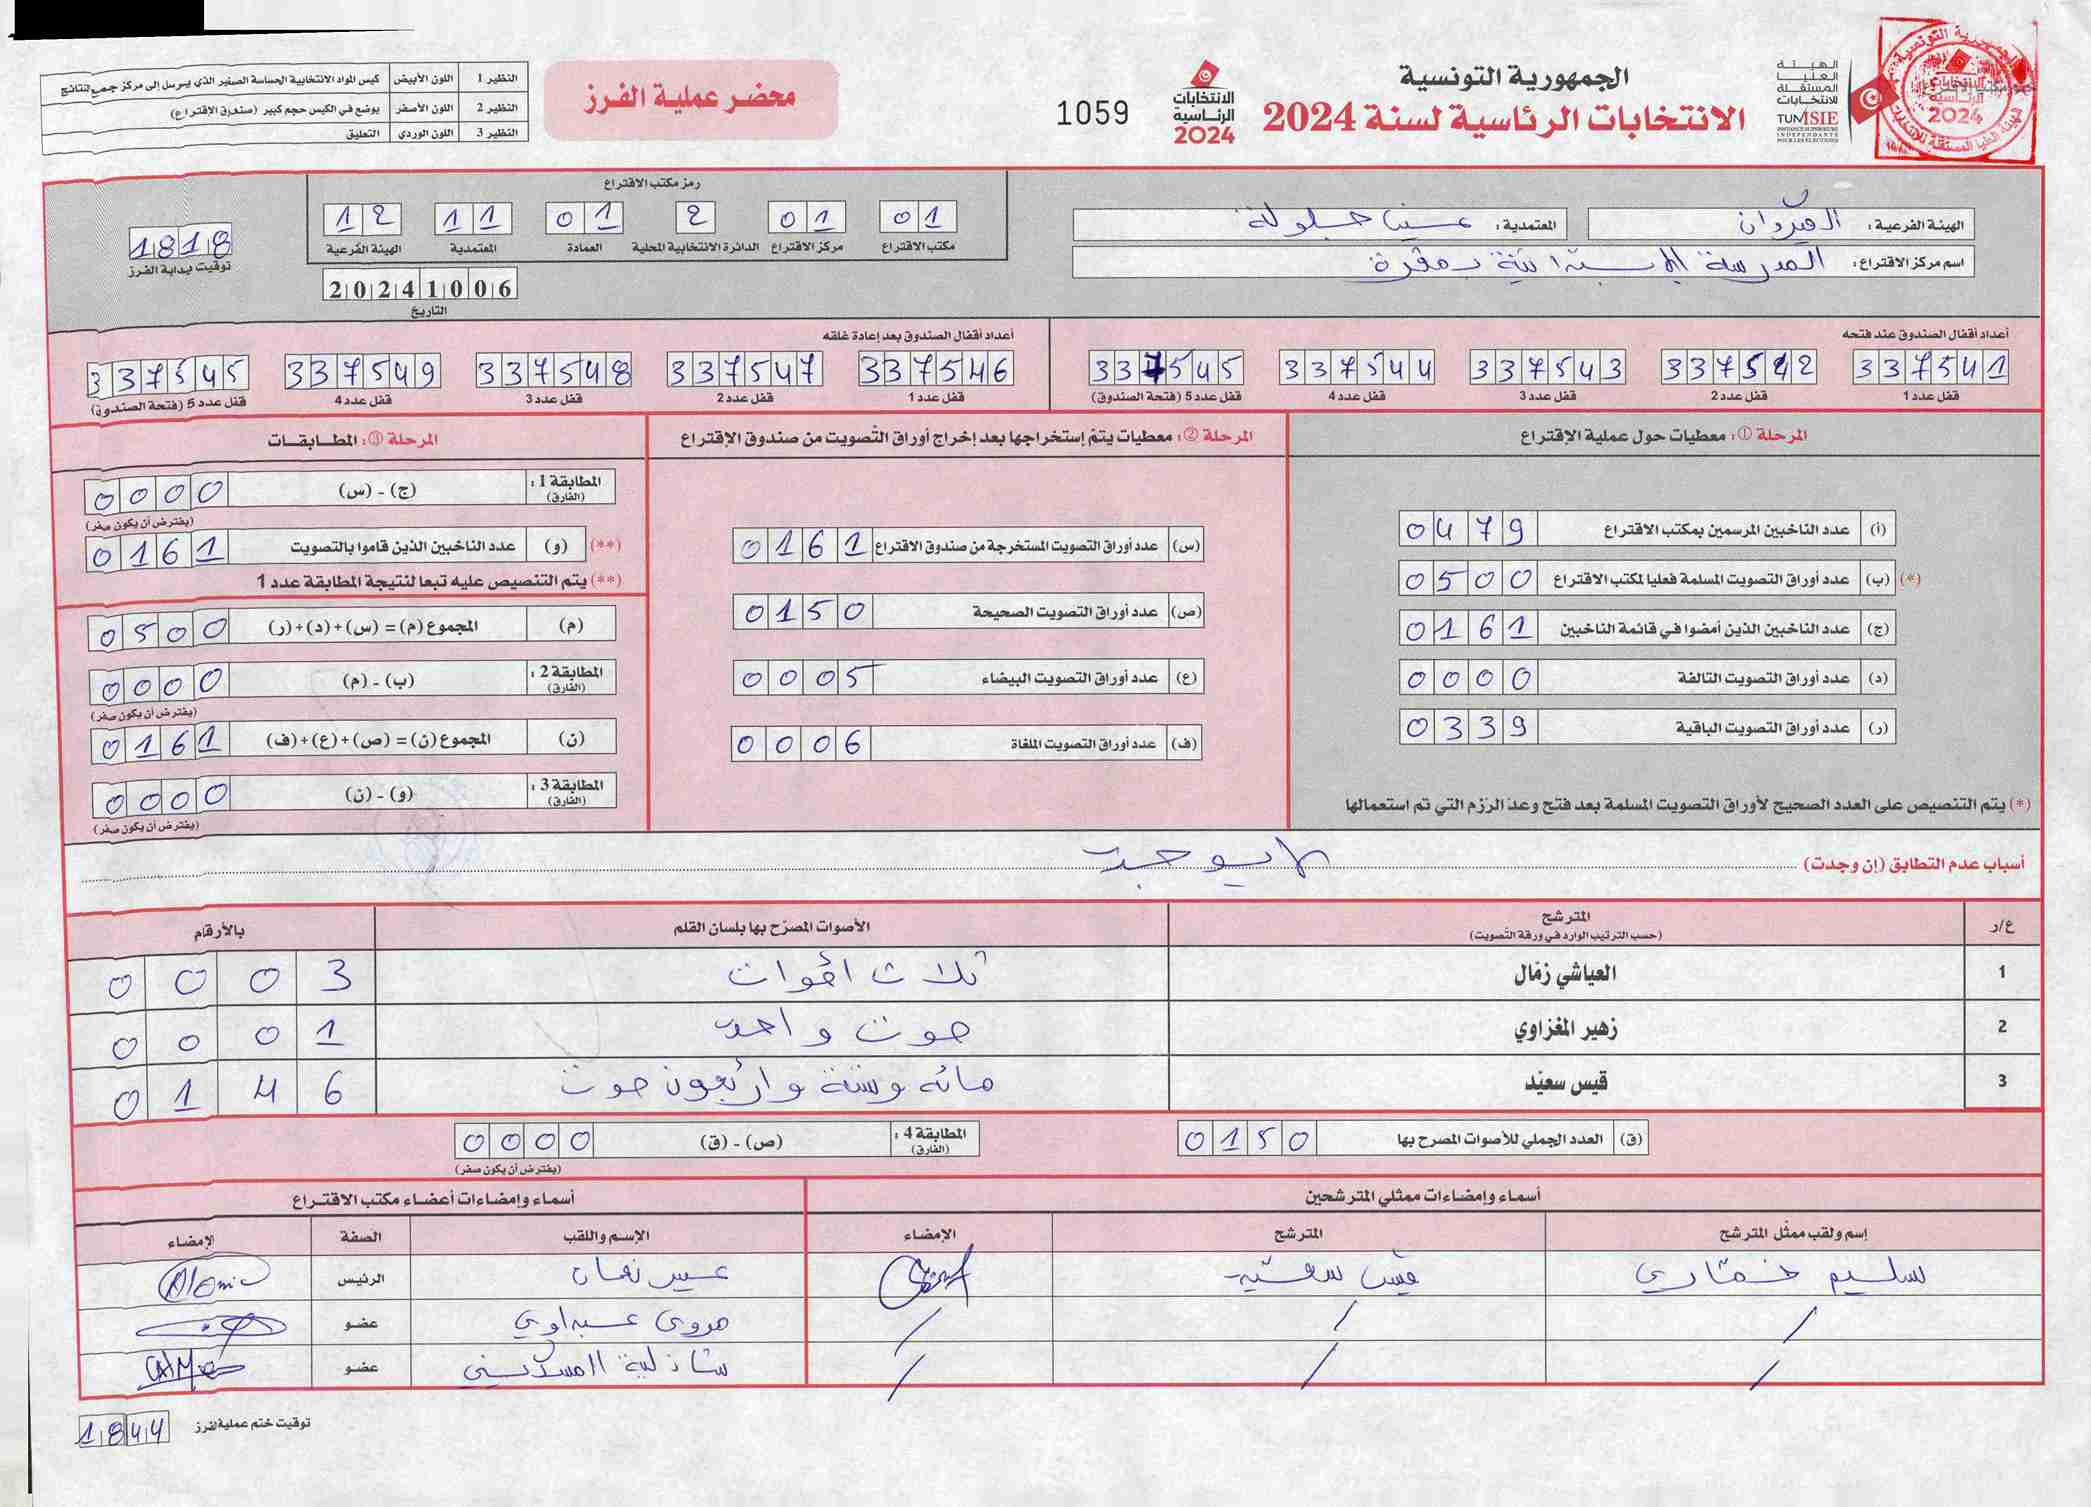 الجمهورية التونسية
الانتخابات الرئاسية لسنة 2024
الهيئة
العليا
المستقلة
للانتخابات
TUNISIE
INSTANCE SUPÉRIEURE
INDÉPENDANTE
POUR LES ÉLECTIONS
الانتخابات
الرئاسية
2024
1059
محضر عملية الفرز
النظير 1 اللون الأبيض كيس المواد الانتخابية الحساسة الصغير الذي يرسل إلى مركز جمع النتائج
النظير 2 اللون الأصفر يوضع في الكيس حجم كبير (صندوق الإقتراع)
النظير 3 اللون الوردي التعليق
الهيئة الفرعية: القيروان
المعتمدية: عين جلولة
اسم مركز الاقتراع: المدرسة الابتدائية بمقرة
رمز مكتب الاقتراع
01 01 2 01 11 12
مكتب الاقتراع مركز الاقتراع الدائرة الانتخابية المحلية العمادة المعتمدية الهيئة الفرعية
20241006
التاريخ
1818
توقيت بداية الفرز
أعداد أقفال الصندوق عند فتحه
337541 337542 337543 337544 337545
قفل عدد 1 قفل عدد 2 قفل عدد 3 قفل عدد 4 قفل عدد 5 (فتحة الصندوق)
أعداد أقفال الصندوق بعد إعادة غلقه
337546 337547 337548 337549 337545
قفل عدد 1 قفل عدد 2 قفل عدد 3 قفل عدد 4 قفل عدد 5 (فتحة الصندوق)
المرحلة ①: معطيات حول عملية الإقتراع
(أ) عدد الناخبين المرسمين بمكتب الاقتراع 0479
(*) (ب) عدد أوراق التصويت المسلمة فعليا لمكتب الاقتراع 0500
(ج) عدد الناخبين الذين أمضوا في قائمة الناخبين 0161
(د) عدد أوراق التصويت التالفة 0000
(ر) عدد أوراق التصويت الباقية 0339
(*) يتم التنصيص على العدد الصحيح لأوراق التصويت المسلمة بعد فتح وعد الرّزم التي تم استعمالها
المرحلة ②: معطيات يتمّ إستخراجها بعد إخراج أوراق التّصويت من صندوق الإقتراع
(س) عدد أوراق التصويت المستخرجة من صندوق الاقتراع 0161
(ص) عدد أوراق التصويت الصحيحة 0150
(ع) عدد أوراق التصويت البيضاء 0005
(ف) عدد أوراق التصويت الملغاة 0006
المرحلة ③: المطابقات
المطابقة 1: (الفارق) (ج) - (س) 0000
(يفترض أن يكون صفر)
(**) (و) عدد الناخبين الذين قاموا بالتصويت 0161
(**) يتم التنصيص عليه تبعا لنتيجة المطابقة عدد 1
(م) المجموع (م) = (س)+(د)+(ر) 0500
المطابقة 2: (الفارق) (ب) - (م) 0000
(يفترض أن يكون صفر)
(ن) المجموع (ن) = (ص)+(ع)+(ف) 0161
المطابقة 3: (الفارق) (و) - (ن) 0000
(يفترض أن يكون صفر)
أسباب عدم التطابق (إن وجدت) لا يوجد
ع/ر المترشح (حسب الترتيب الوارد في ورقة التّصويت) الأصوات المصرّح بها بلسان القلم بالأرقام
1 العياشي زمّال ثلاث أصوات 0003
2 زهير المغزاوي صوت واحد 0001
3 قيس سعيّد مائة وستة وأربعون صوت 0146
(ق) العدد الجملي للأصوات المصرح بها 0150
المطابقة 4: (الفارق) (ص) - (ق) 0000
(يفترض أن يكون صفر)
أسماء وإمضاءات ممثلي المترشحين
إسم ولقب ممثّل المترشح المترشح الإمضاء
سليم خمّاري قيس سعيّد
/ / /
/ / /
أسماء وإمضاءات أعضاء مكتب الاقتراع
الإسم واللقب الصّفة الإمضاء
عبير نعمان الرئيس
مروى عبداوي عضو
شاذلية عضو
توقيت ختم عملية الفرز 1844